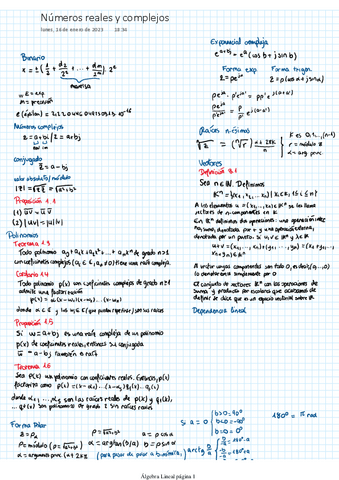 Números reales y complejos
lunes, 16 de enero de 2023 18:34
Binario
x = ± (1/2 + d₂/2² + ... + dₘ/2ᵐ) · 2ᵉ
e = exp.
m = precisión
Números complejos
z = a + bi / z = a + bj
conjugado
z̄ = a - bj
valor absoluto / módulo
|z| = √(z z̄) = √(a²+b²)
Proposición 1.1
Polinomios
Teorema 1.3
Todo polinomio a₀ + a₁x + a₂x² + ... + aₙxⁿ de grado n ≥ 1
con coeficientes complejos (aᵢ ∈ ℂ, aₙ ≠ 0) tiene una raíz compleja.
Corolario 1.4
Todo polinomio p(x) con coeficientes complejos de grado n ≥ 1
admite una factorización
p(x) = α(x - w₁)(x - w₂)...(x - wₙ)
donde α ∈ ℂ y los wᵢ ∈ ℂ (que pueden repetirse) son las raíces
Proposición 1.5
Si w = a + bj es una raíz compleja de un polinomio
p(x) de coeficientes reales, entonces su conjugada
w̄ = a - bj también es raíz
Teorema 1.6
Sea p(x) un polinomio con coeficientes reales. Entonces, p(x)
factoriza como
donde α₁, ..., αᵣ son las raíces reales de p(x) y q₁(x),
... son polinomios de grado 2 sin raíces reales
Forma Polar
ρ = módulo (ρ = √(a²+b²))
α = argumento
ρ = √(a²+b²)
α = artan(b/a)
a = ρ cos α
b = ρ sin α
(para pasar de polar a binómica)
Exponencial compleja
e^(a+bj) = e^a (cos b + j sin b)
Forma exp
z = ρe^(jα)
Forma trigon.
z = ρ(cos α + j sin α)
Raíces n-ésimas
K es 0,1,...(n-1)
r = módulo z
α = arg princ
Vectores
Definición 2.1
Sea n ∈ ℕ. Definimos
Kⁿ = {(x₁, x₂, ..., xₙ) | xᵢ ∈ K, 1 ≤ i ≤ n}
A los elementos u = (x₁, ..., xₙ) ∈ Kⁿ se les llama
vectores de n componentes en K
En Kⁿ definimos dos operaciones: una operación interna
suma, denotada por + y una operación externa,
denotada por un punto. Si u, v ∈ Kⁿ y λ ∈ K
u + v = (x₁, ..., xₙ) + (y₁, ..., yₙ) = (x₁ + y₁, ...,
xₙ + yₙ) ∈ Kⁿ
A vector cuyas componentes son todo 0, es decir (0,...,0)
lo denotaremos simplemente por 0
El conjunto de vectores Kⁿ con las operaciones de
suma y producto por escalares que acabamos de
definir se dice que es un espacio vectorial sobre K
Dependencia lineal
si a = 0
b > 0 = 90°
180° = π rad
Álgebra Lineal página 1